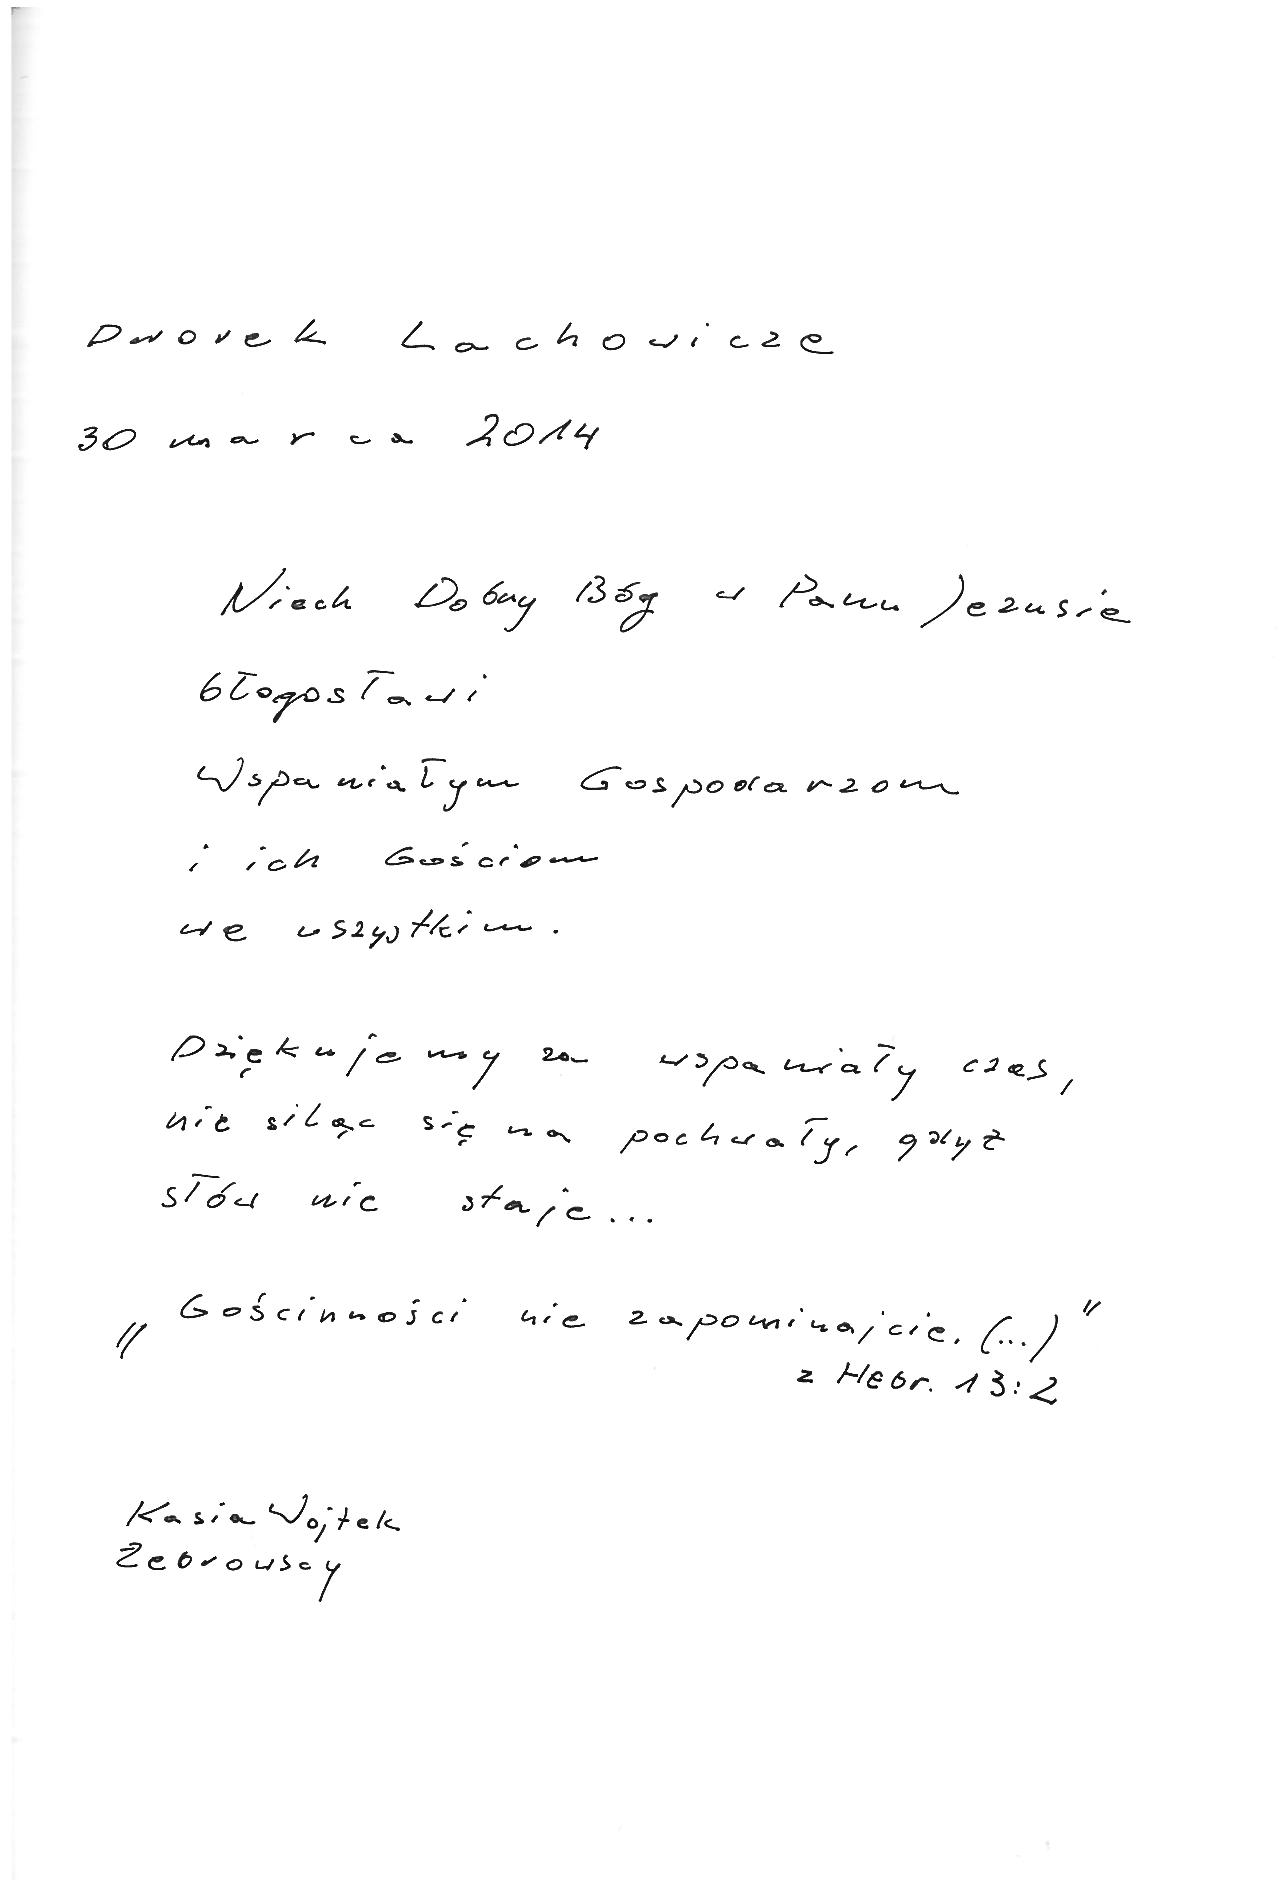 Dworek Lachowicze
30 marca 2014
Niech Dobry Bóg w Panu Jezusie
błogosławi
Wspaniałym Gospodarzom
i ich Gościom
we wszystkim.
Dziękujemy za wspaniały czas,
nie siląc się na pochwały, gdyż
słów nie staje...
„Gościnności nie zapominajcie. (...)"
z Hebr. 13:2
Kasia Wojtek
Żebrowscy